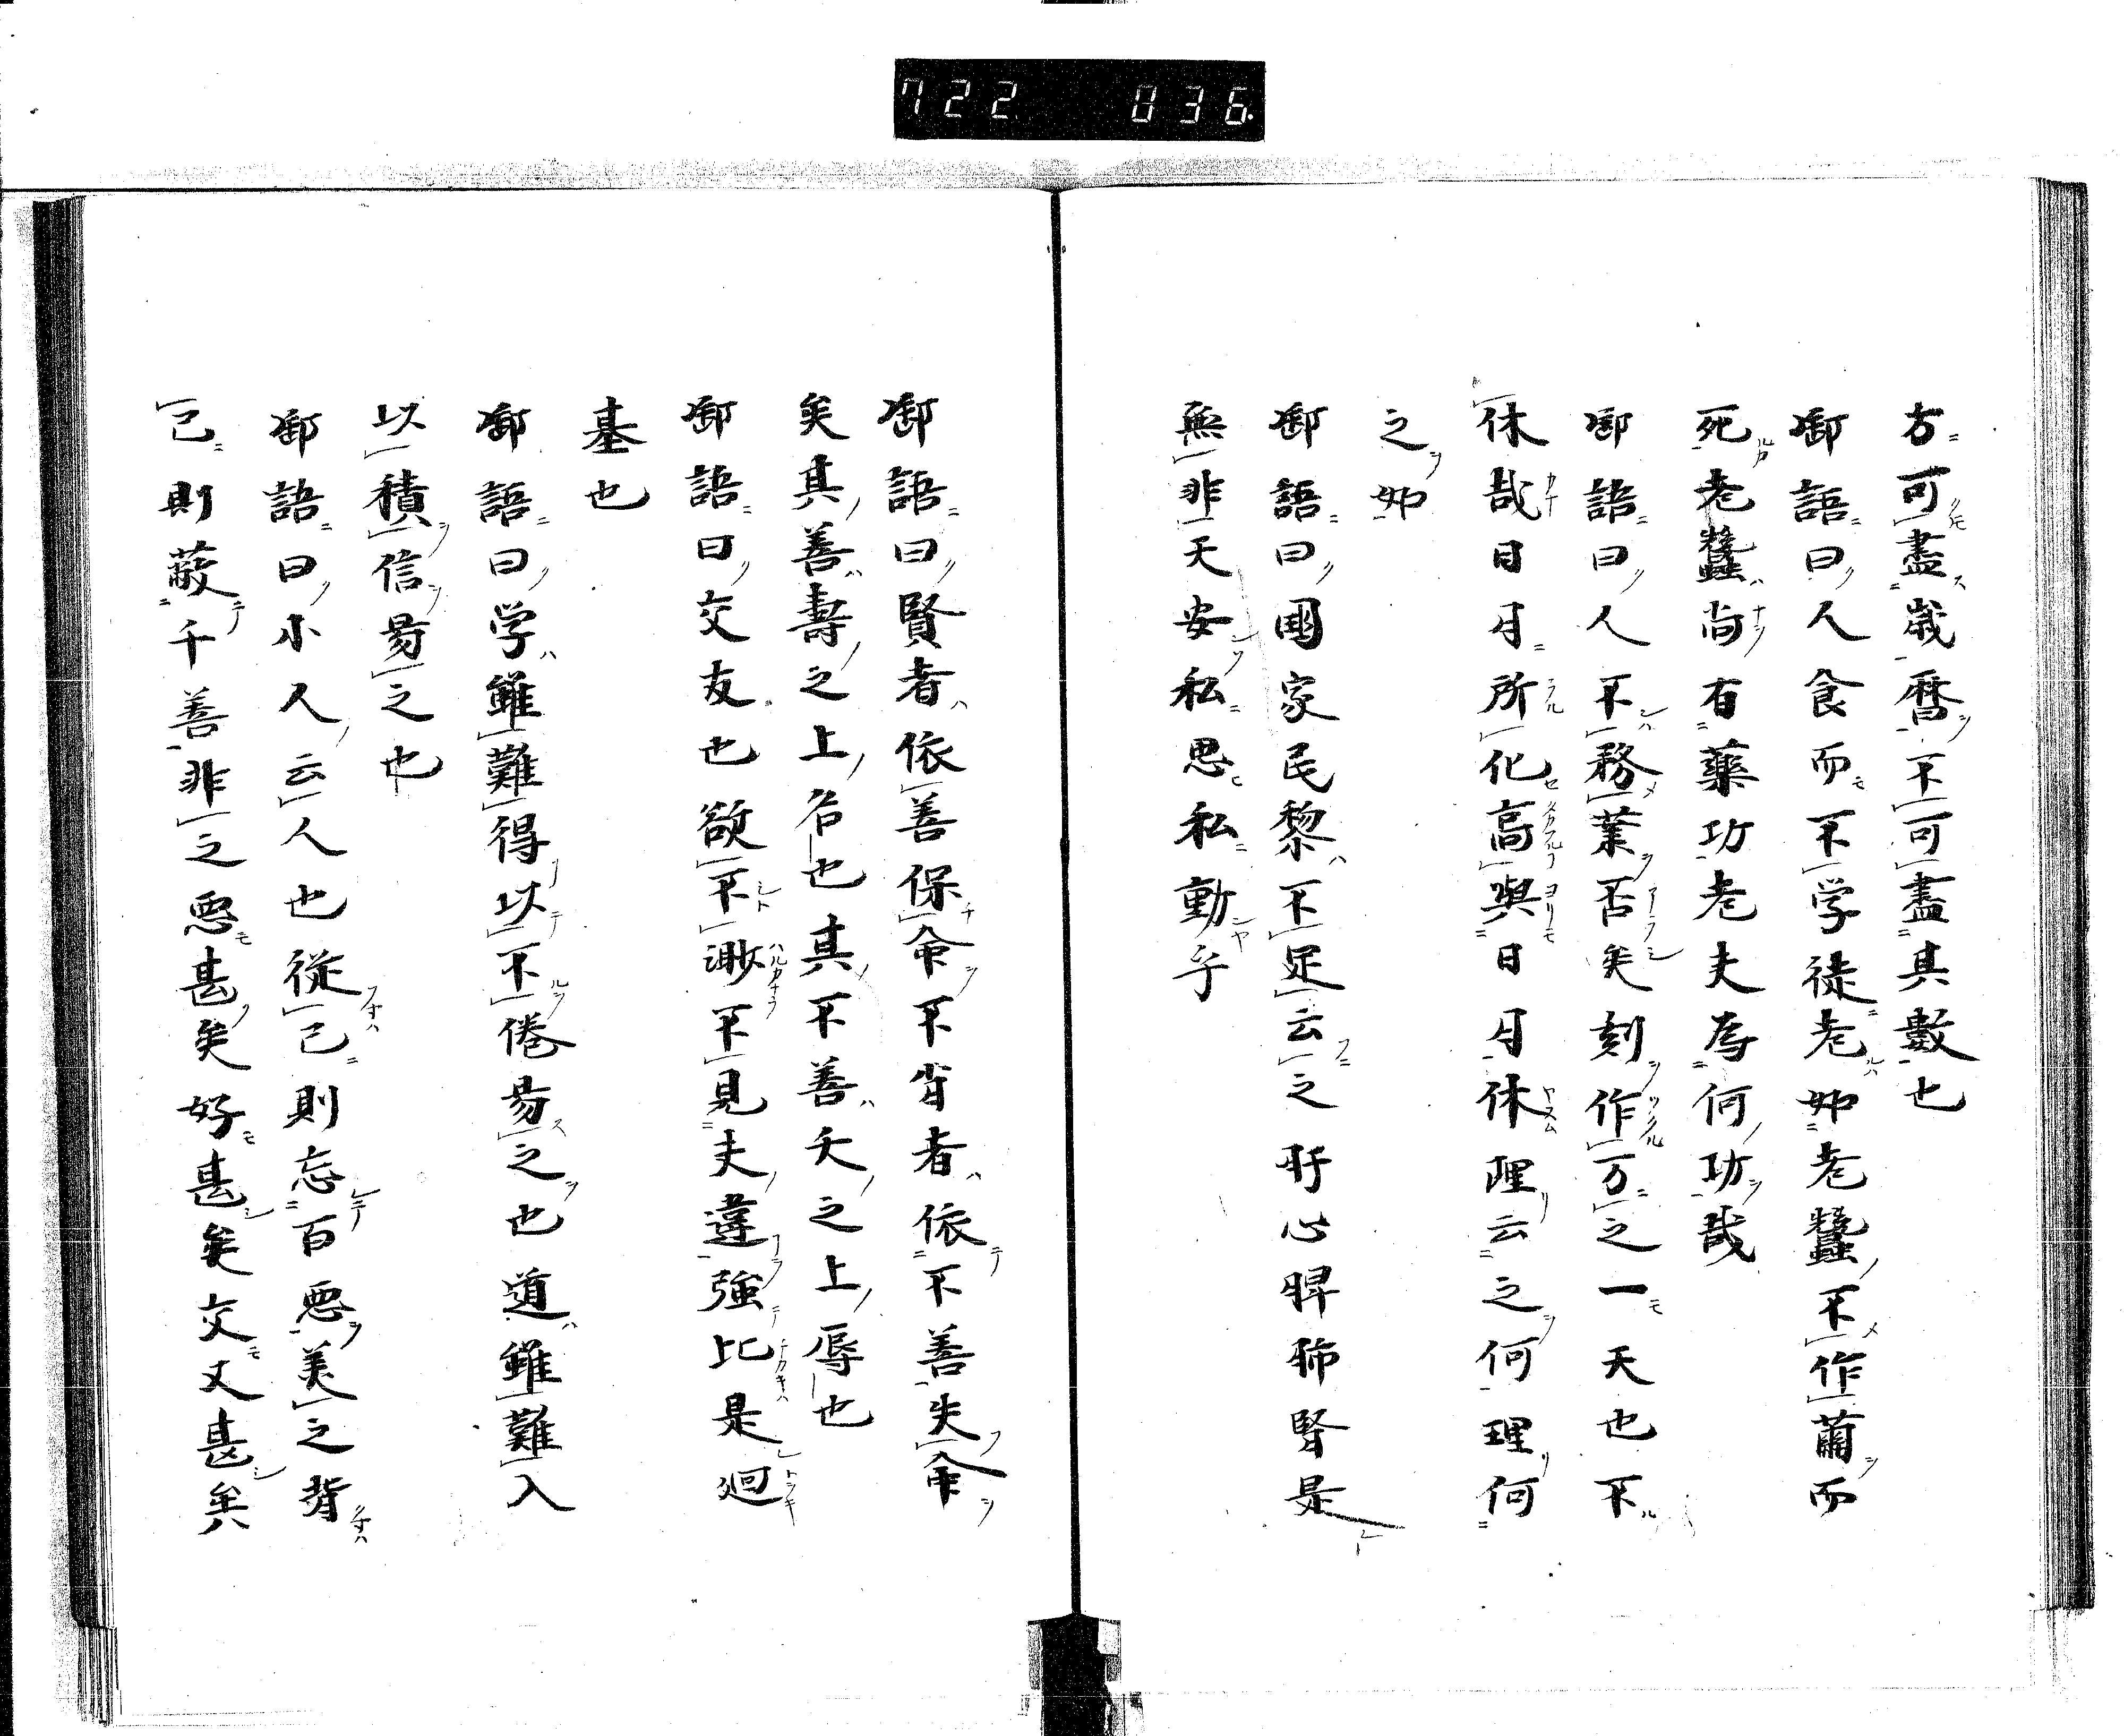 722 036
方可盡歳暦不可盡其數也
御語曰人食而不学徒老如老蠶不作繭而
死老蠶尚有藥功老夫為何功哉
御語曰人不務業否矣刻作万之一天也不
休哉日月所化高與日月休理云之何理何
之如
御語曰國家民黎不足云之肝心脾肺腎是
無非天安私思私動乎
御語曰賢者依善保命不肖者依不善失命
矣其善壽之上名也其不善夭之上辱也
御語曰交友也欲不渺不見夫違強比是廻
基也
御語曰学雖難得以不倦易之也道雖難入
以積信易之也
御語曰小人云人也從己則忘百惡美之背
己則蔽千善非之惡甚矣好甚矣交丈甚矣